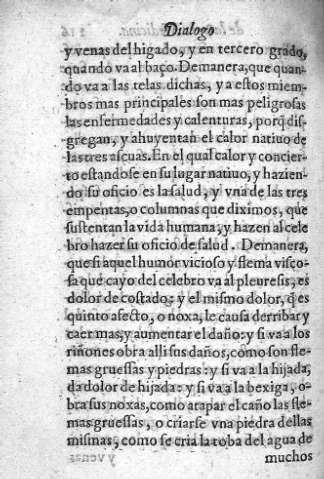 Dialogo
y venas del higado, y en tercero grado,
quando va al baço. Demanera, que quan-
do va a las telas dichas, y a estos miem-
bros mas principales son mas peligrosas
las enfermedades y calenturas, porq̃ dis-
gregan, y ahuyentan el calor natiuo de
las tres ascuas. En el qual calor y concier-
to estandose en su lugar natiuo, y hazien-
do su oficio es la salud, y vna de las tres
empentas, o columnas que diximos, que
sustentan la vida humana, y hazen al cele
bro hazer su oficio de salud. Demanera,
que si aquel humor vicioso y flema visco-
sa que cayo del celebro va al pleuresis, es
dolor de costado: y el mismo dolor, q̃ es
quinto afecto, o noxa, le causa derribar y
caer mas, y aumentar el daño: y si va a los
riñones obra alli sus daños, como son fle-
mas gruessas y piedras: y si va a la hijada,
da dolor de hijada: y si va a la bexiga, o-
bra sus noxas, como atapar el caño las fle-
mas gruessas, o criarse vna piedra dellas
mismas, como se cria la toba del agua de
muchos